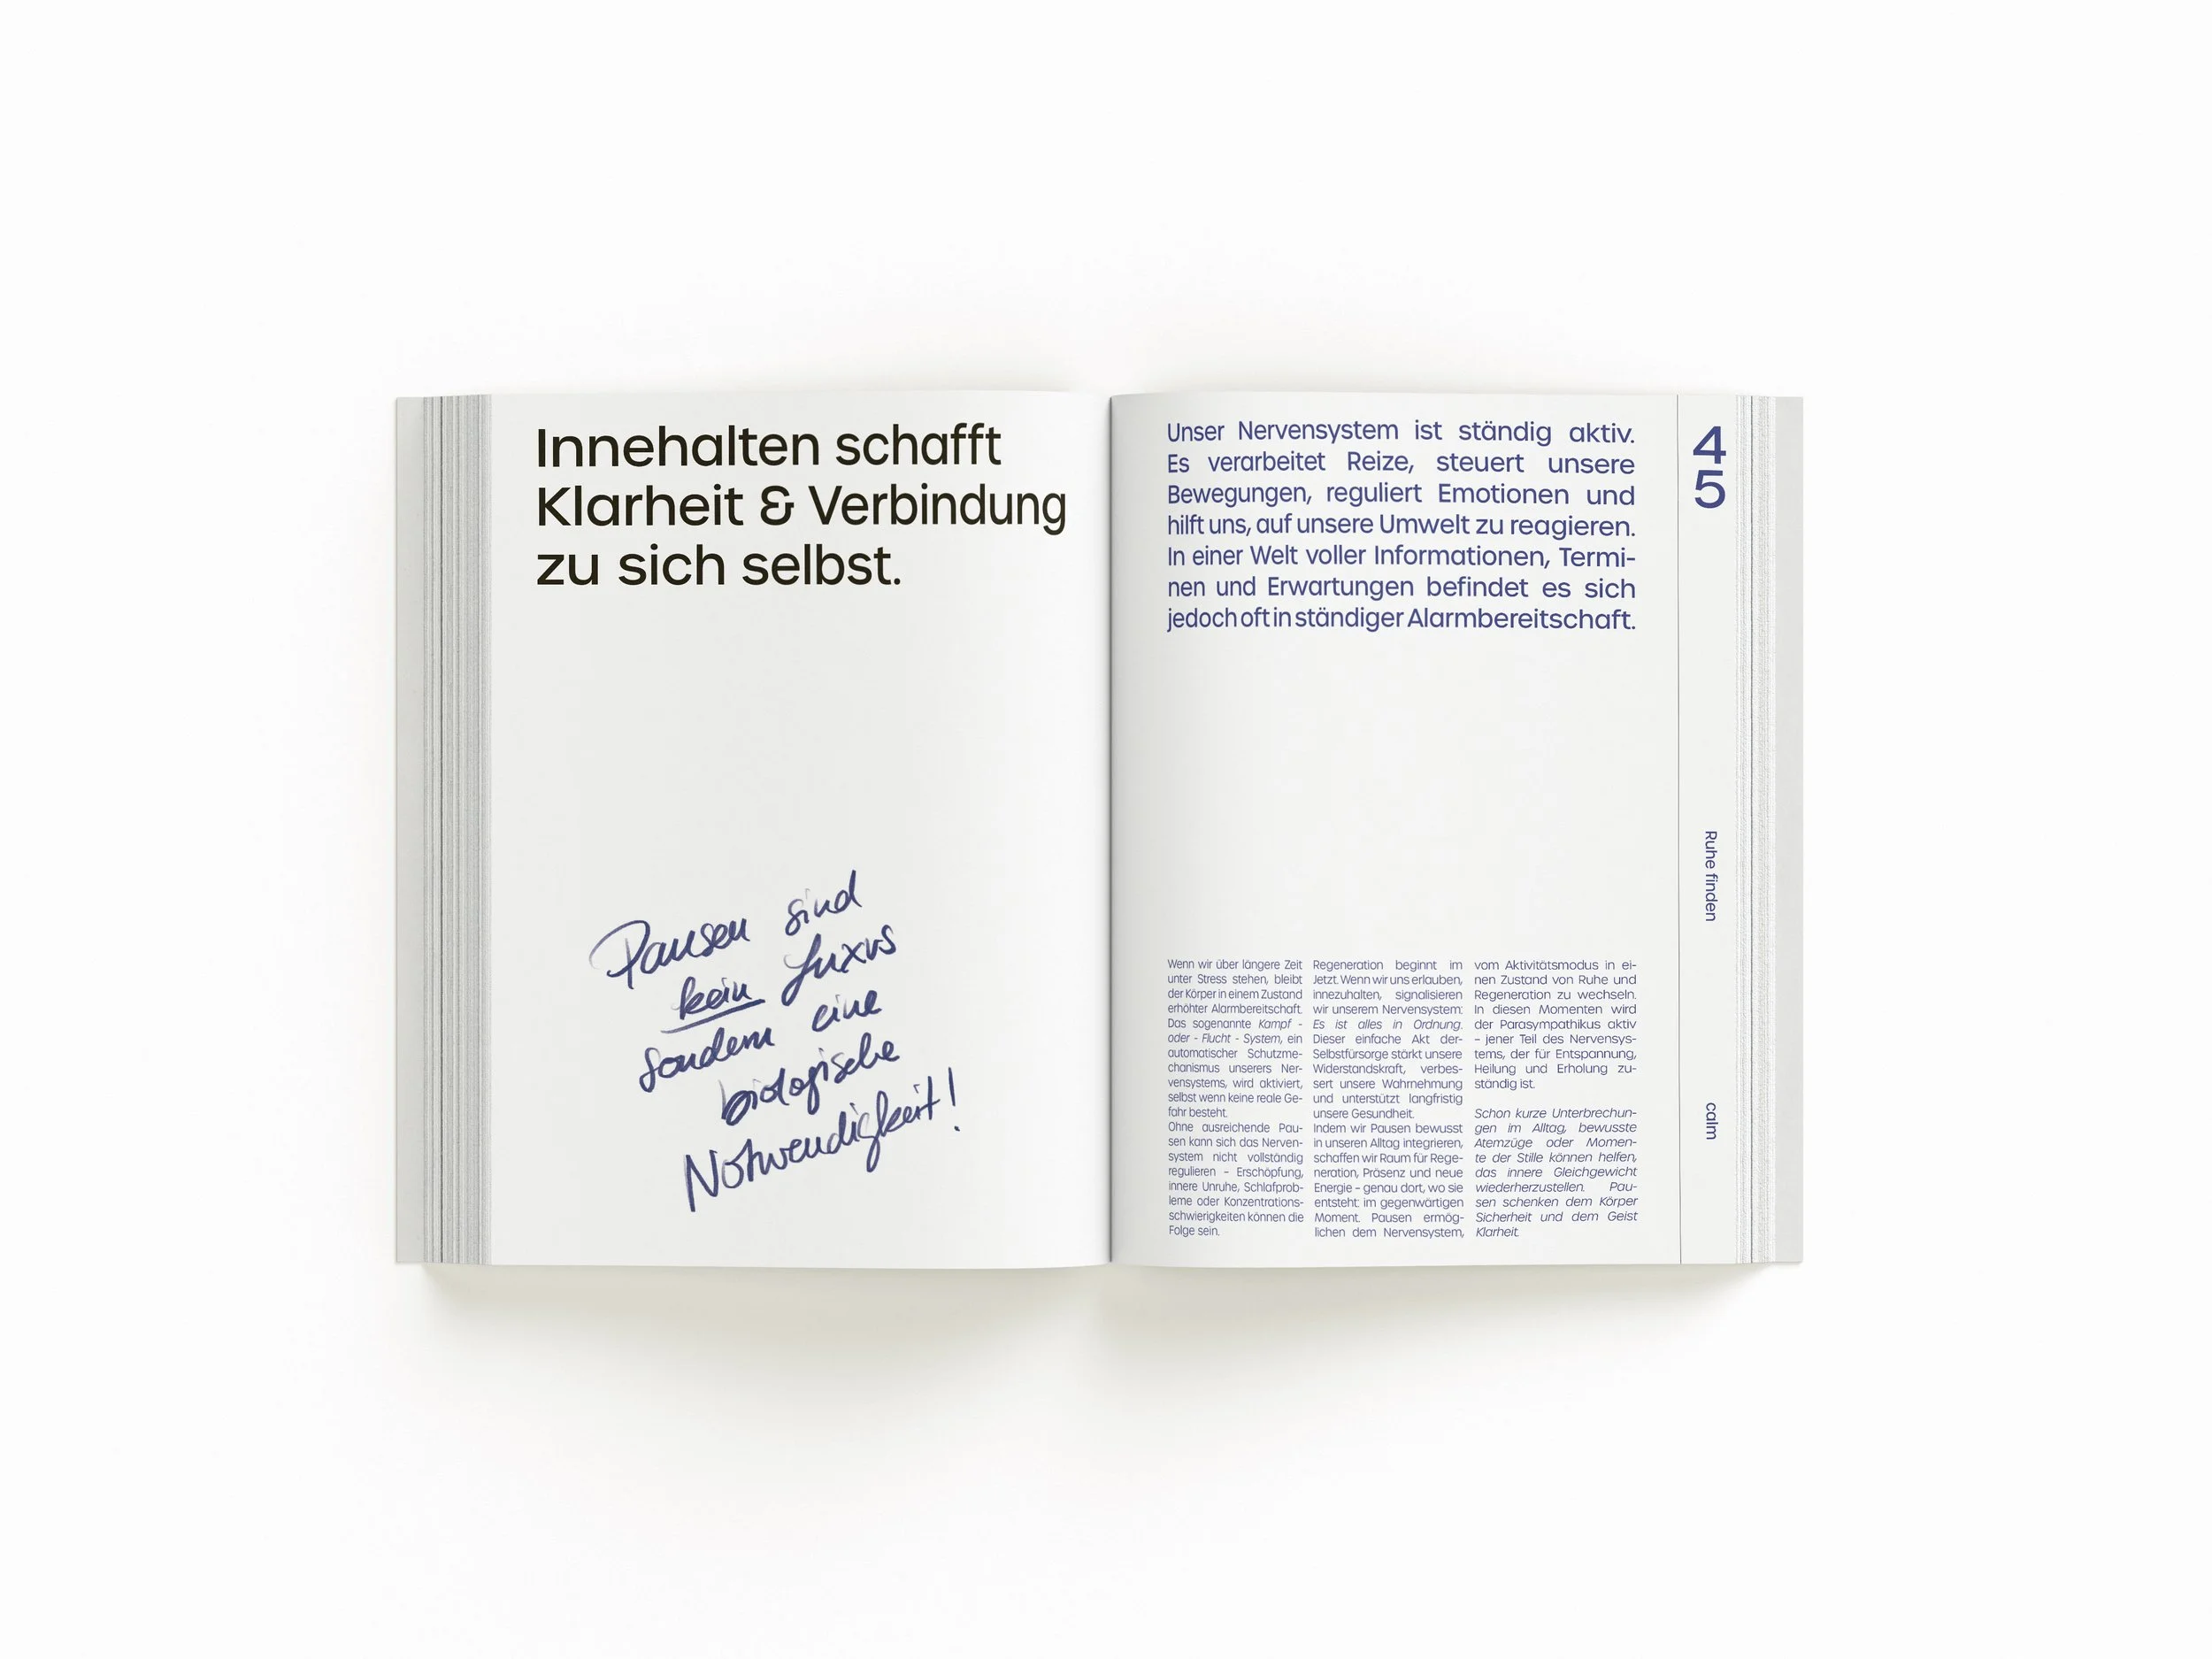 Innehalten schafft
Klarheit & Verbindung
zu sich selbst.
Pausen sind
kein Luxus
sondern eine
biologische
Notwendigkeit!
Unser Nervensystem ist ständig aktiv.
Es verarbeitet Reize, steuert unsere
Bewegungen, reguliert Emotionen und
hilft uns, auf unsere Umwelt zu reagieren.
In einer Welt voller Informationen, Termi-
nen und Erwartungen befindet es sich
jedoch oft in ständiger Alarmbereitschaft.
Wenn wir über längere Zeit
unter Stress stehen, bleibt
der Körper in einem Zustand
erhöhter Alarmbereitschaft.
Das sogenannte Kampf -
oder - Flucht - System, ein
automatischer Schutzme-
chanismus unserers Ner-
vensystems, wird aktiviert,
selbst wenn keine reale Ge-
fahr besteht.
Ohne ausreichende Pau-
sen kann sich das Nerven-
system nicht vollständig
regulieren – Erschöpfung,
innere Unruhe, Schlafprob-
leme oder Konzentrations-
schwierigkeiten können die
Folge sein.
Regeneration beginnt im
Jetzt. Wenn wir uns erlauben,
innezuhalten, signalisieren
wir unserem Nervensystem:
Es ist alles in Ordnung.
Dieser einfache Akt der-
Selbstfürsorge stärkt unsere
Widerstandskraft, verbes-
sert unsere Wahrnehmung
und unterstützt langfristig
unsere Gesundheit.
Indem wir Pausen bewusst
in unseren Alltag integrieren,
schaffen wir Raum für Rege-
neration, Präsenz und neue
Energie – genau dort, wo sie
entsteht: im gegenwärtigen
Moment. Pausen ermög-
lichen dem Nervensystem,
vom Aktivitätsmodus in ei-
nen Zustand von Ruhe und
Regeneration zu wechseln.
In diesen Momenten wird
der Parasympathikus aktiv
– jener Teil des Nervensys-
tems, der für Entspannung,
Heilung und Erholung zu-
ständig ist.
Schon kurze Unterbrechun-
gen im Alltag, bewusste
Atemzüge oder Momen-
te der Stille können helfen,
das innere Gleichgewicht
wiederherzustellen. Pau-
sen schenken dem Körper
Sicherheit und dem Geist
Klarheit.
4
5
Ruhe finden
calm